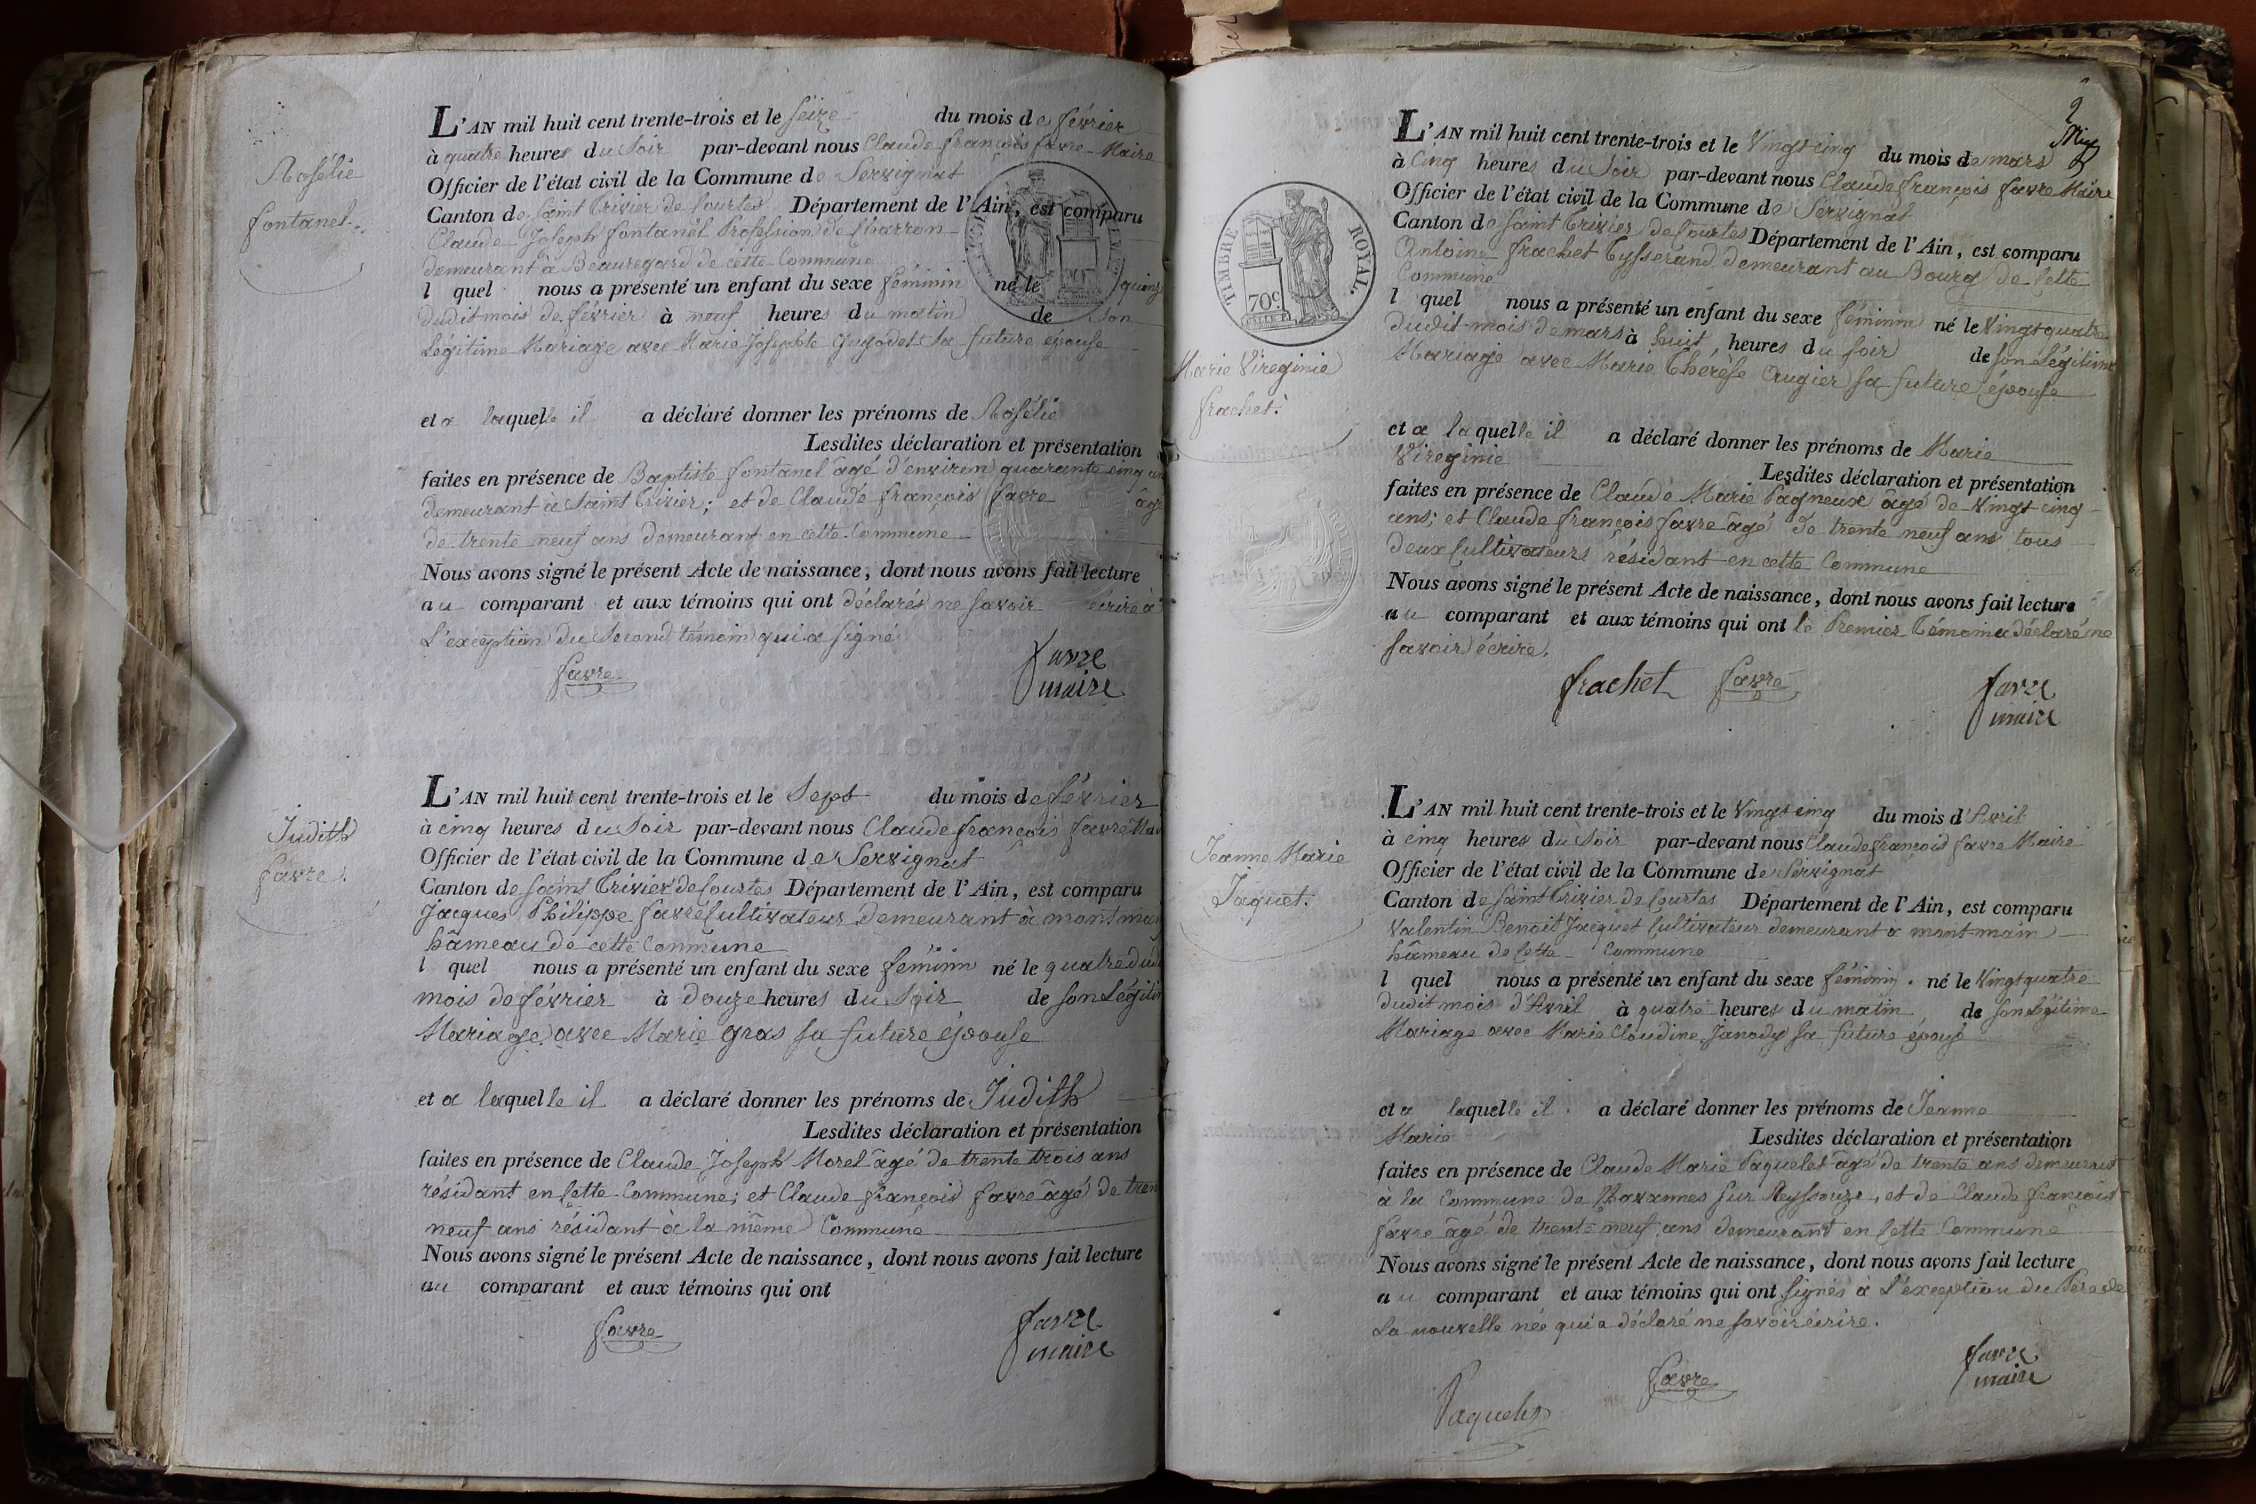 Rosélie
fontanel.
L'AN mil huit cent trente-trois et le seize du mois de février
à quatre heures du soir par-devant nous Claude françois favre Maire
Officier de l'état civil de la Commune de Servignat
Canton de saint Trivier de Courtes Département de l'Ain, est comparu
Claude Joseph fontanel Profession de Charron
demeurant à Beauregard de cette Commune
l quel nous a présenté un enfant du sexe féminin né le quinze
dudit mois de février à neuf heures du matin de son
Légitime Mariage avec Marie Josephte sa future épouse
et a laquelle il a déclaré donner les prénoms de Rosélie
Lesdites déclaration et présentation
faites en présence de Baptiste fontanel âgé d'environ quarante cinq ans
demeurant à Saint Trivier; et de Claude françois favre âgé
de trente neuf ans demeurant en cette Commune
Nous avons signé le présent Acte de naissance, dont nous avons fait lecture
au comparant et aux témoins qui ont déclarés ne savoir écrire à
L'exception du Second témoin qui a signé
favre
favre
maire
Judith
favre.
L'AN mil huit cent trente-trois et le Sept du mois de février
à cinq heures du Soir par-devant nous Claude françois favre Mai
Officier de l'état civil de la Commune de Servignat
Canton de saint Trivier de Courtes Département de l'Ain, est comparu
Jacques Philippe favre Cultivateur demeurant à mont
hâmeau de cette Commune
l quel nous a présenté un enfant du sexe féminin né le quatre dudi
mois de février à douze heures du Soir de son Légitim
Mariage avec Marie gras sa future épouse
et a laquelle il a déclaré donner les prénoms de Judith
Lesdites déclaration et présentation
faites en présence de Claude Joseph Morel âgé de trente trois ans
résidant en cette Commune; et Claude françois favre âgé de tren
neuf ans résidant à la même Commune
Nous avons signé le présent Acte de naissance, dont nous avons fait lecture
au comparant et aux témoins qui ont
favre
favre
maire
2
TIMBRE ROYAL.
70c.
Marie Vireginie
frachet.
L'AN mil huit cent trente-trois et le Vingt cinq du mois de mars
à Cinq heures du Soir par-devant nous Claude françois favre Maire
Officier de l'état civil de la Commune de Servignat
Canton de saint Trivier de Courtes Département de l'Ain, est comparu
Antoine frachet Tysserand demeurant au Bourg de Cette
Commune
l quel nous a présenté un enfant du sexe féminin né le Vingt quatre
dudit mois de mars à huit heures du soir de son Légitime
Mariage avec Marie Thérèse sa future épouse
et a laquelle il a déclaré donner les prénoms de Marie
Vireginie
Lesdites déclaration et présentation
faites en présence de Claude Marie Pagneux âgé de Vingt cinq
ans; et Claude françois favre âgé de trente neuf ans tous
deux Cultivateurs résidant en cette Commune
Nous avons signé le présent Acte de naissance, dont nous avons fait lecture
au comparant et aux témoins qui ont le Premier Témoin a déclaré ne
savoir écrire.
frachet favre
favre
maire
Jeanne Marie
Jaquet.
L'AN mil huit cent trente-trois et le Vingt cinq du mois d'Avril
à cinq heures du Soir par-devant nous Claude françois favre Maire
Officier de l'état civil de la Commune de Servignat
Canton de saint Trivier de Courtes Département de l'Ain, est comparu
Valentin Benoit Jacquet Cultivateur demeurant a mont main
hâmeau de Cette Commune
l quel nous a présenté un enfant du sexe féminin. né le Vingt quatre
dudit mois d'Avril à quatre heures du matin de son Légitime
Mariage avec Marie Claudine Janody sa future épouse
et a laquelle il a déclaré donner les prénoms de Jeanne
Marie
Lesdites déclaration et présentation
faites en présence de Claude Marie Paquelet âgé de trente ans demeurant
à la Commune de Chavannes sur Reyssouze, et de Claude françois
favre âgé de trente neuf ans demeurant en Cette Commune
Nous avons signé le présent Acte de naissance, dont nous avons fait lecture
au comparant et aux témoins qui ont signés à L'exception du Père de
La nouvelle née qui a déclaré ne savoir écrire.
Paquelet
favre
favre
maire